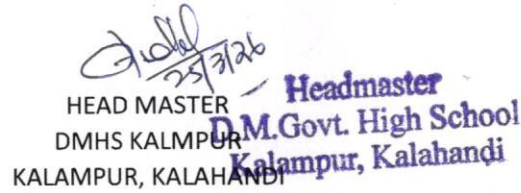 25/3/26
HEAD MASTER
DMHS KALMPUR
KALAMPUR, KALAHANDI
Headmaster
D.M.Govt. High School
Kalampur, Kalahandi